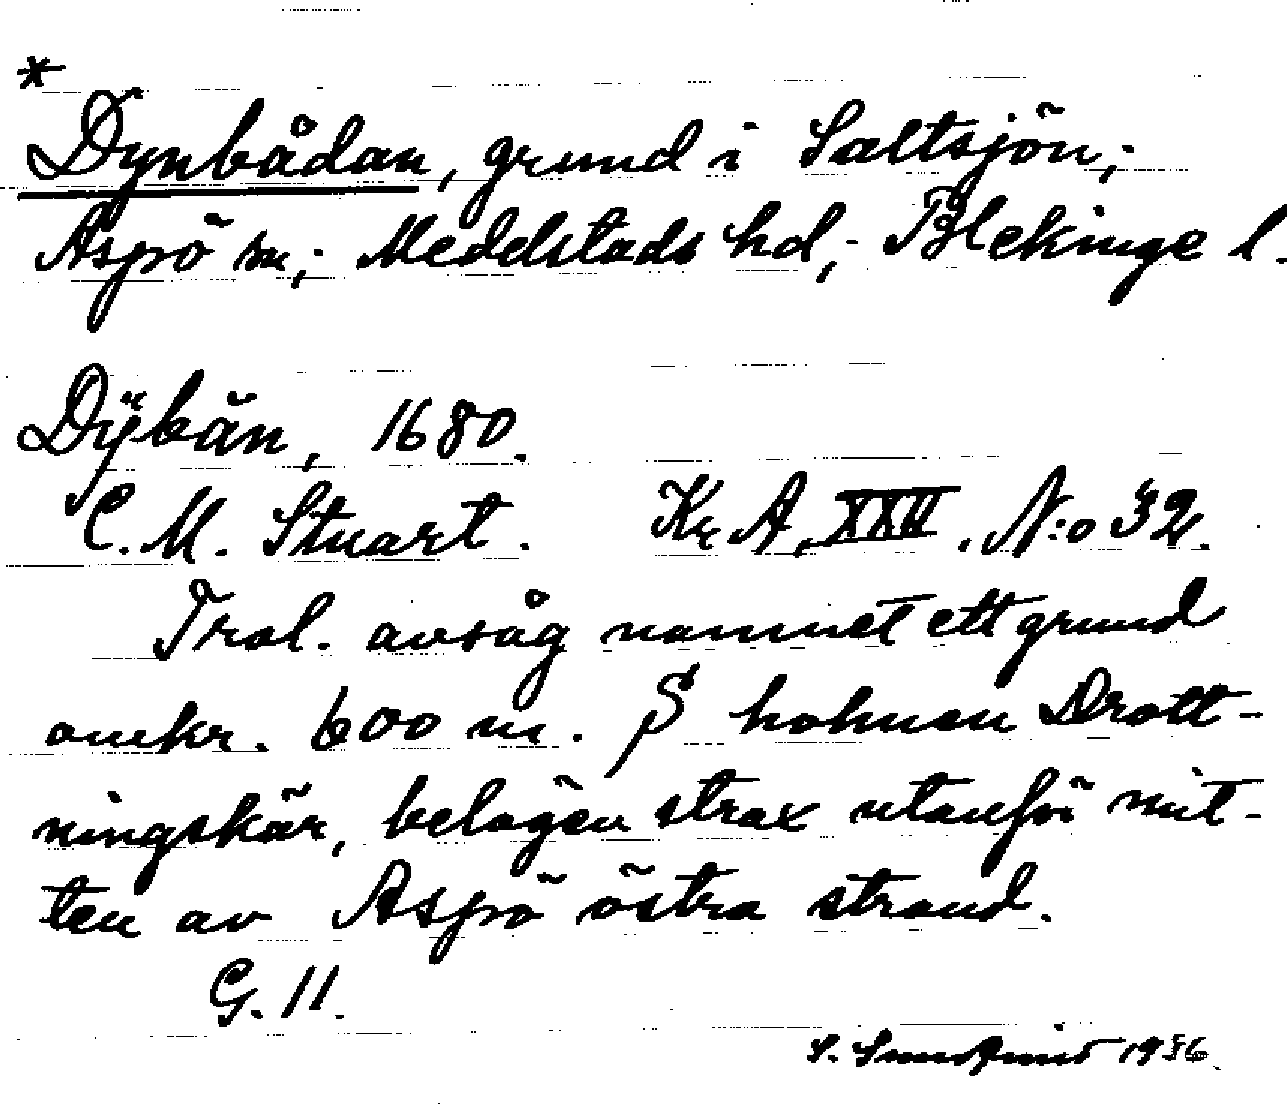 *
Dynbådan, grund i Saltsjön,;
Aspö sn,; Meddstads hd,; Blekinge l.
Dÿbän, 1680.
C. M. Stuart. Kr A, XXV. N:o 32.
Trol. avsåg namnet ett grund
omkr. 600 m. S holmen Drott-
ningskär, belägen strax utanför mit-
ten av Aspö östra strand.
G. 11.
S. 1956.